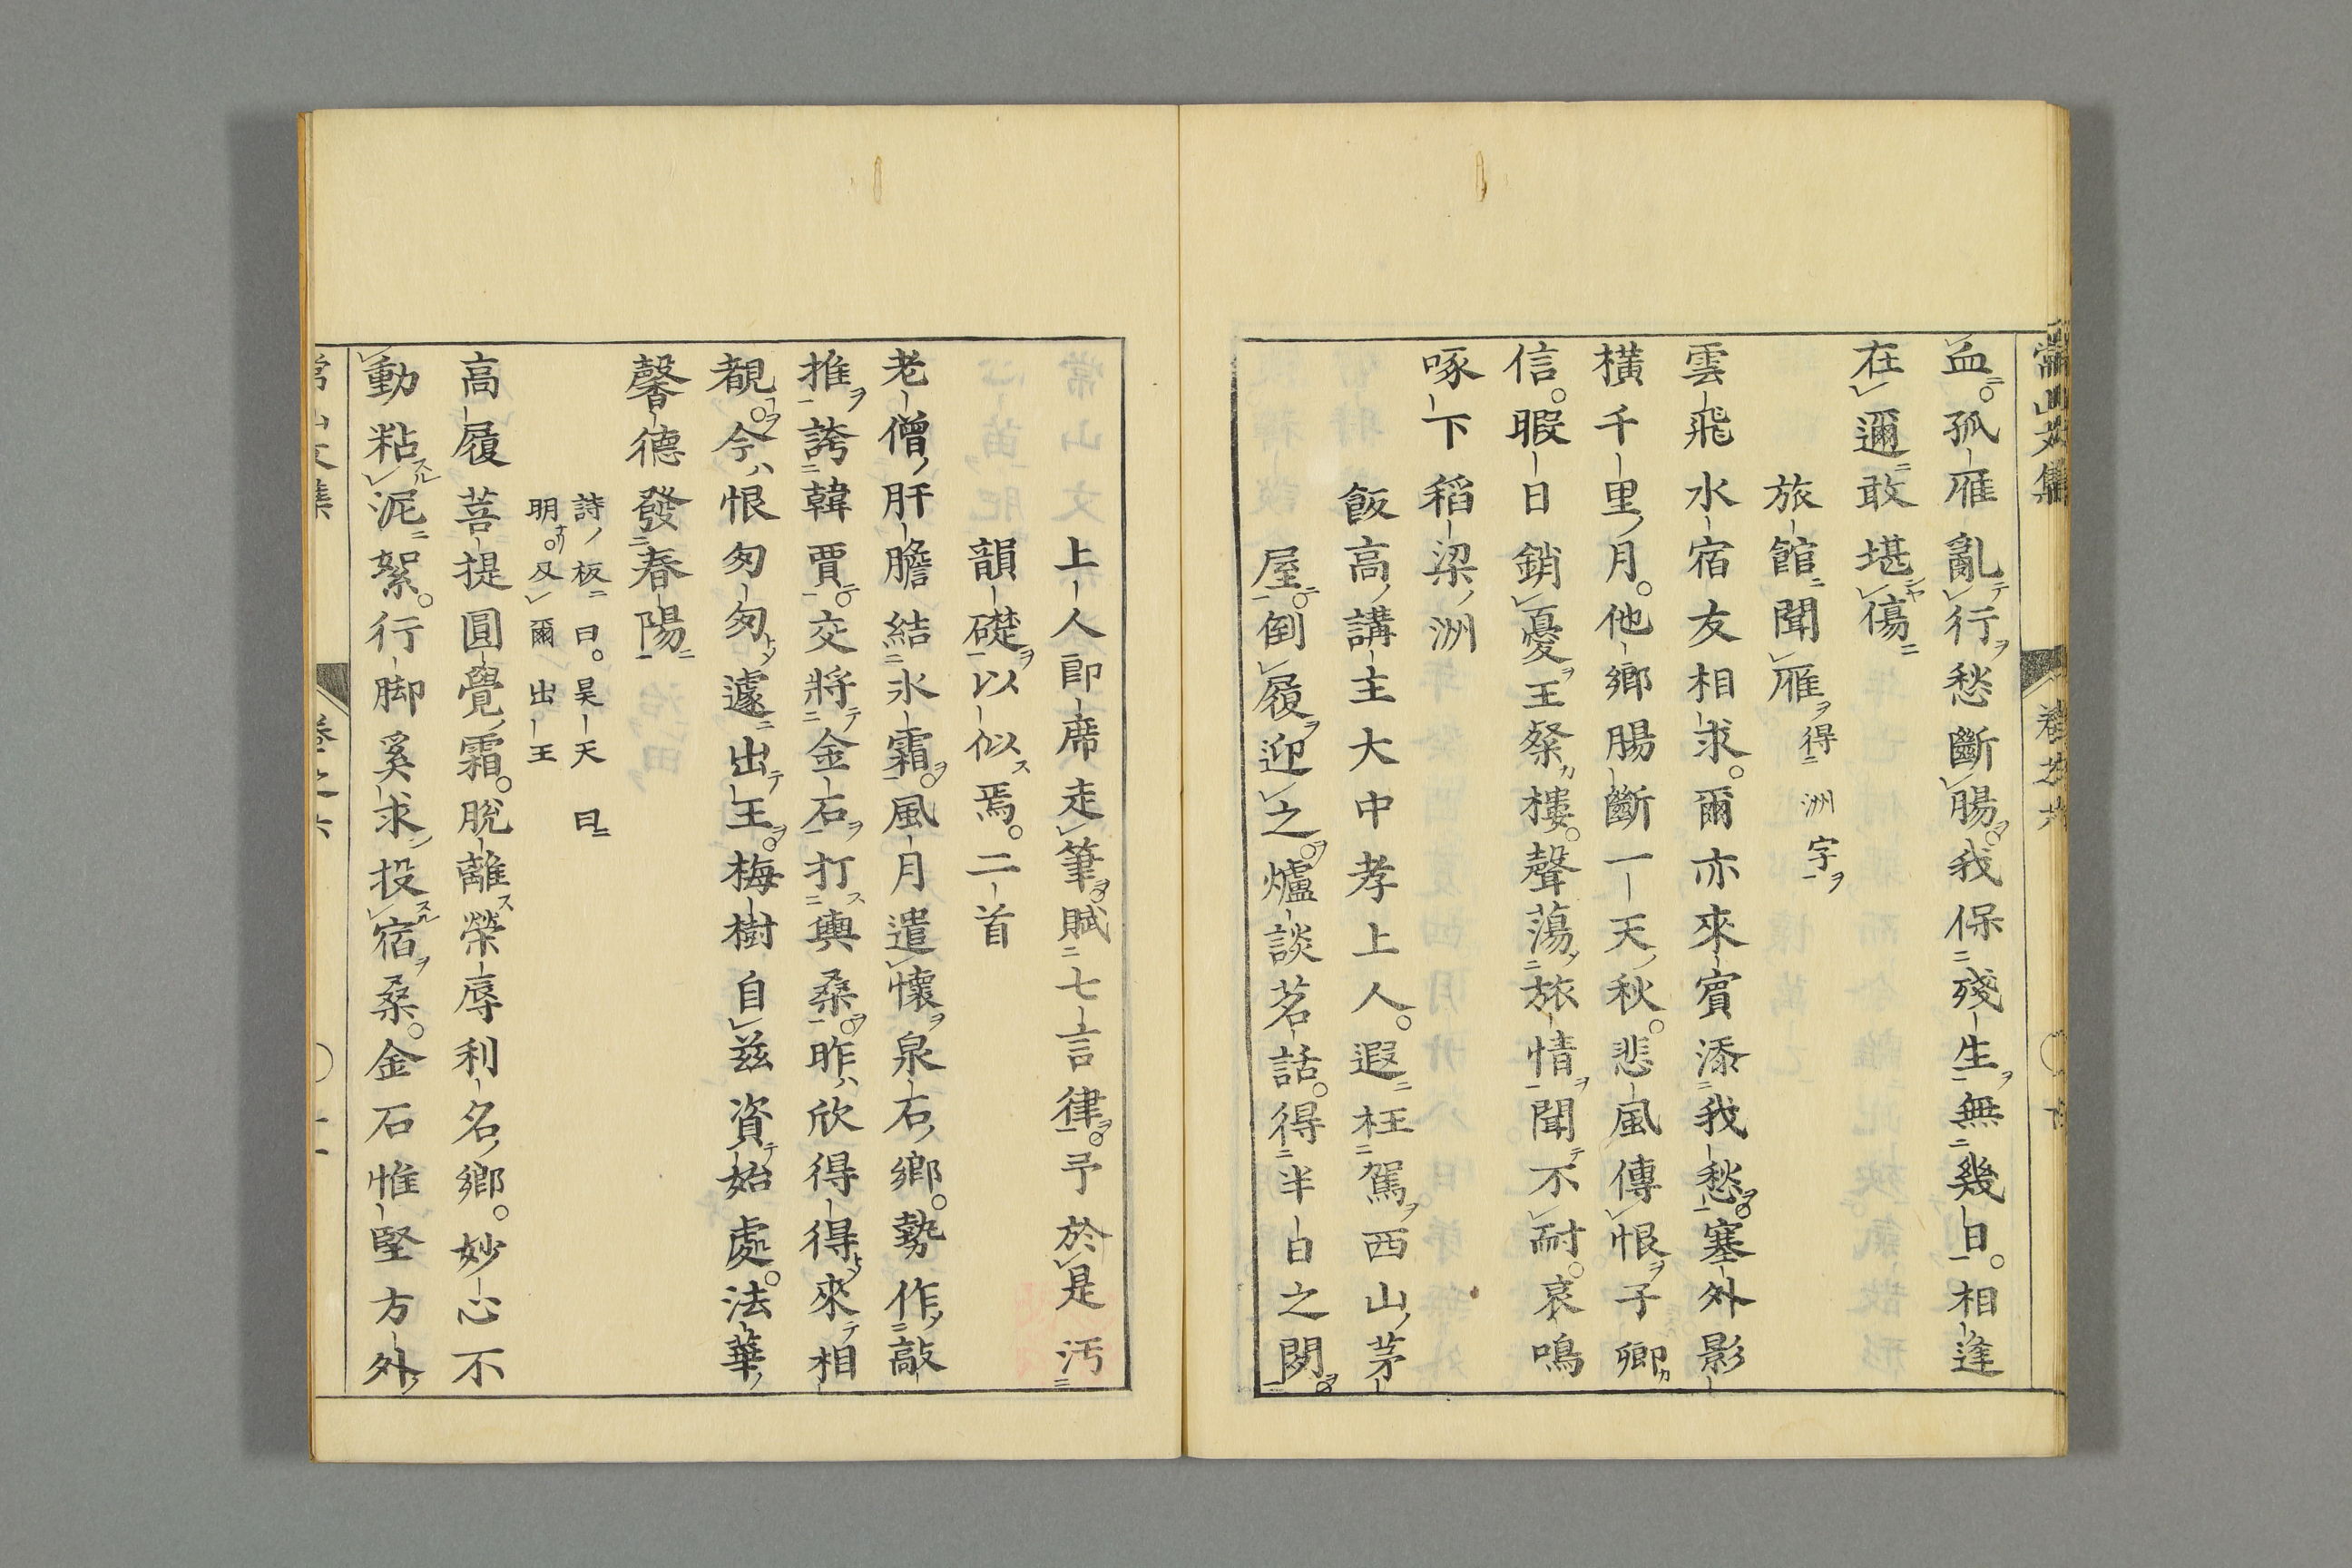 常山文集
卷之六
血孤雁亂行愁斷腸我保殘生無幾日相逢
在邇敢堪傷
旅館聞雁得洲字
雲飛水宿友相求爾亦來賓添我愁塞外影
橫千里月他鄉腸斷一天秋悲風傳恨子卿
信暇日銷憂王粲樓聲蕩旅情聞不耐哀鳴
啄下稻梁洲
飯高講主大中孝上人遐枉駕西山茅
屋倒履迎之爐談茗話得半白之閑
上人即席走筆賦七言律予於是汚
韻礎以似焉二首
老僧肝膽結氷霜風月遣懷泉石鄉勢作敲
推誇韓賈交將金石打輿桑昨欣得得來相
覩今恨匆匆遽出王梅樹自茲資始處法華
馨德發春陽
詩板曰昊天曰
明及爾出王
高履菩提圓覺霜脫離榮辱利名鄉妙心不
動粘泥絮行脚奚求投宿桑金石惟堅方外
常山文集
卷之六